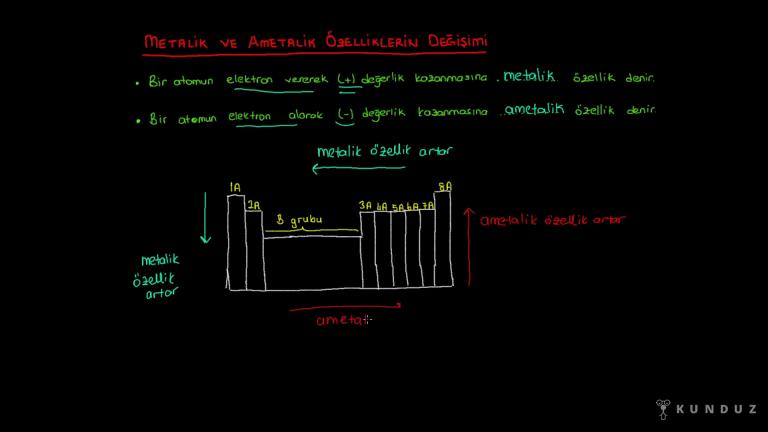 METALİK VE AMETALİK ÖZELLİKLERİN DEĞİŞİMİ
• Bir atomun elektron vererek (+) değerlik kazanmasına metalik özellik denir.
• Bir atomun elektron alarak (-) değerlik kazanmasına ametalik özellik denir.
metalik özellik artar
1A
2A
B grubu
3A 4A 5A 6A 7A
8A
ametalik özellik artar
metalik
özellik
artar
ametal
KUNDUZ